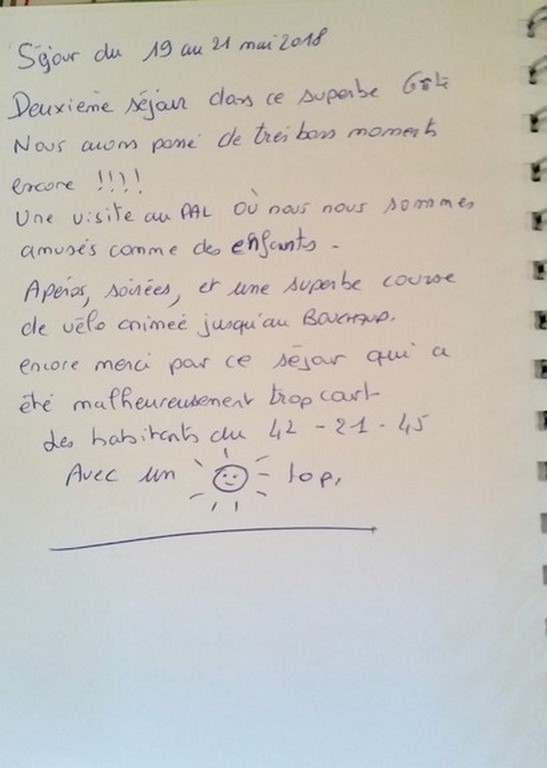 Séjour du 19 au 21 mai 2018
Deuxième séjour dans ce superbe Gîte
Nous avons passé de très bons moments
encore !!!!
Une visite au PAL où nous nous sommes
amusés comme des enfants.
Apéros, soirées, et une superbe course
de vélo animeé jusqu'au BOUCHAUD.
encore merci par ce séjour qui a
été malheureusement trop court
des habitants du 42 - 21 - 45
Avec un top.